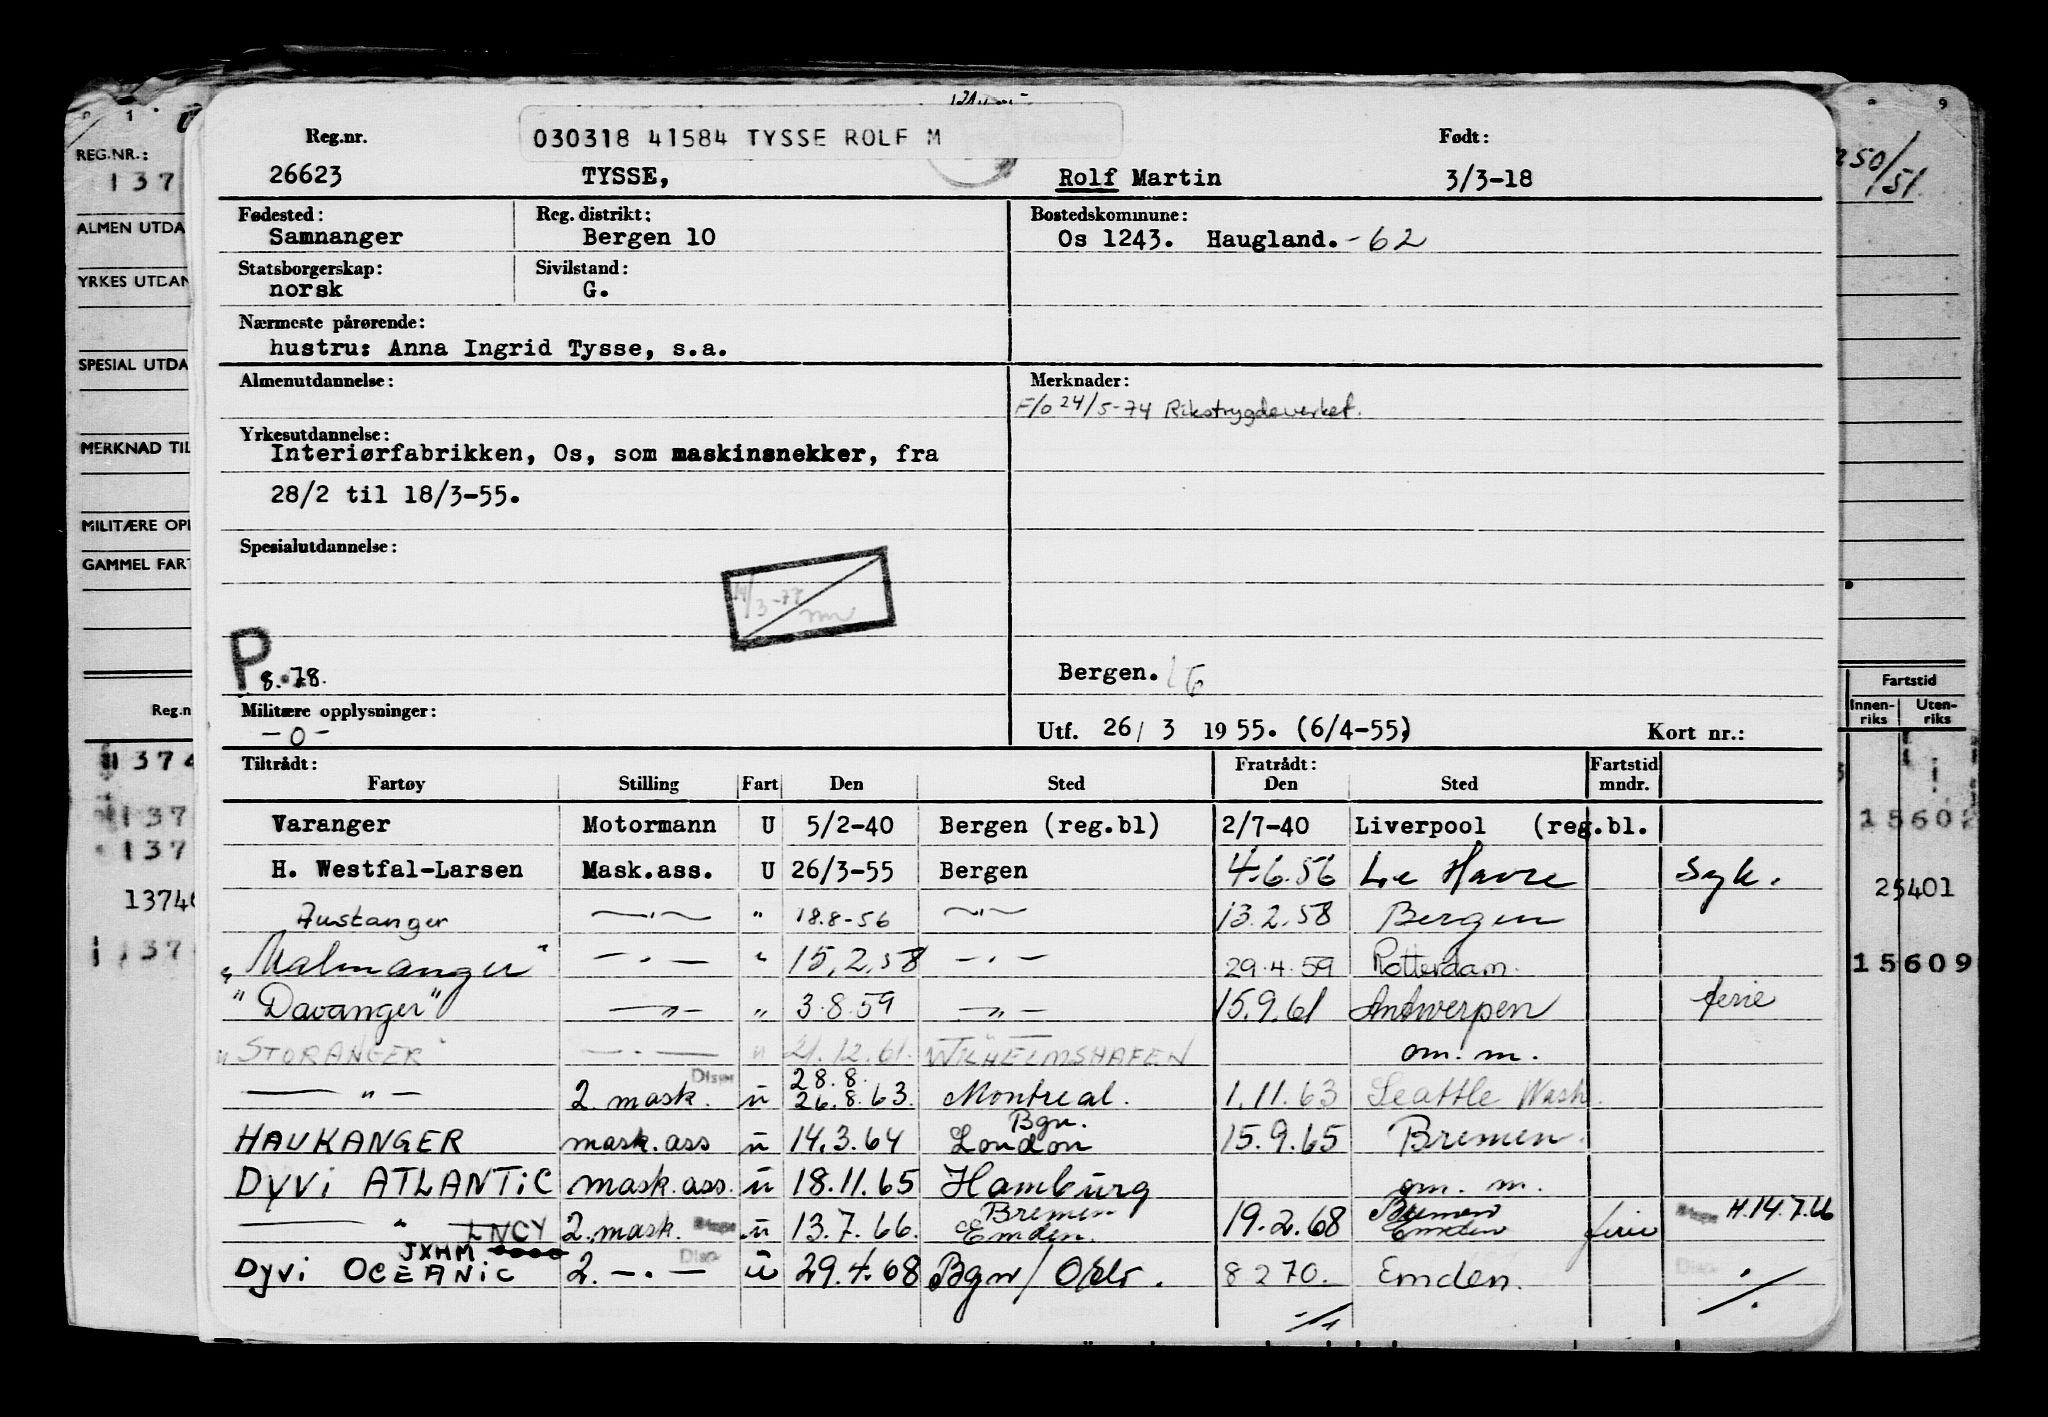 030318 41584 TYSSE ROLF M
Reg.nr. Født:
26623 TYSSE, Rolf Martin 3/3-18
Fødested: Reg. distrikt: Bostedskommune:
Samnanger Bergen 10 Os 1243. Haugland. -62
Statsborgerskap: Sivilstand:
norsk G.
Nærmeste pårørende:
hustru: Anna Ingrid Tysse, s.a.
Almenutdannelse: Merknader:
F/o 24/5-74 Rikstrygdeverket.
Yrkesutdannelse:
Interiørfabrikken, Os, som maskinsnekker, fra
28/2 til 18/3-55.
Spesialutdannelse:
P 8.78. Bergen.
Militære opplysninger:
-0- Utf. 26/ 3 1955. (6/4-55) Kort nr.:
Tiltrådt: Fratrådt: Fartstid
Fartøy Stilling Fart Den Sted Den Sted mndr.
Varanger Motormann U 5/2-40 Bergen (reg.bl) 2/7-40 Liverpool (reg.bl.
H. Westfal-Larsen Mask.ass. U 26/3-55 Bergen 4.6.56 Le Havre Syk.
Fustanger —"— " 18.8-56 —"— 13.2.58 Bergen
"Malmanger" —"— " 15.2.58 —"— 29.4.59 Rotterdam.
"Davanger" —"— " 3.8.59 —"— 15.9.61 Antwerpen ferie
"STORANGER" —"— " 21.12.61. WILHELMSHAFEN om. m.
28.8.
—"— 2. mask. Disp u 26.8.63. Montreal. 1.11.63 Seattle Wash.
Bgn.
HAUKANGER mask.ass u 14.3.64 London 15.9.65 Bremen.
DYVI ATLANTIC mask.ass. u 18.11.65 Hamburg om. m.
Bremen Bremen
—"— LNCY 2. mask. u 13.7.66. Emden. 19.2.68 Emden ferie H.14.7.66
JXHM
DYVI OCEANIC 2. —"— Disp u 29.4.68 Bgn/Oslo. 8 2 70. Emden.
1
REG.NR.:
137
ALMEN UTDA
YRKES UTDAN
SPESIAL UTDA
MERKNAD TIL
MILITÆRE OPP
GAMMEL FART
Reg.n
1374
137
137
13746
137
9
50/51
Fartstid
Innen-riks Uten-riks
15602
25401
15609